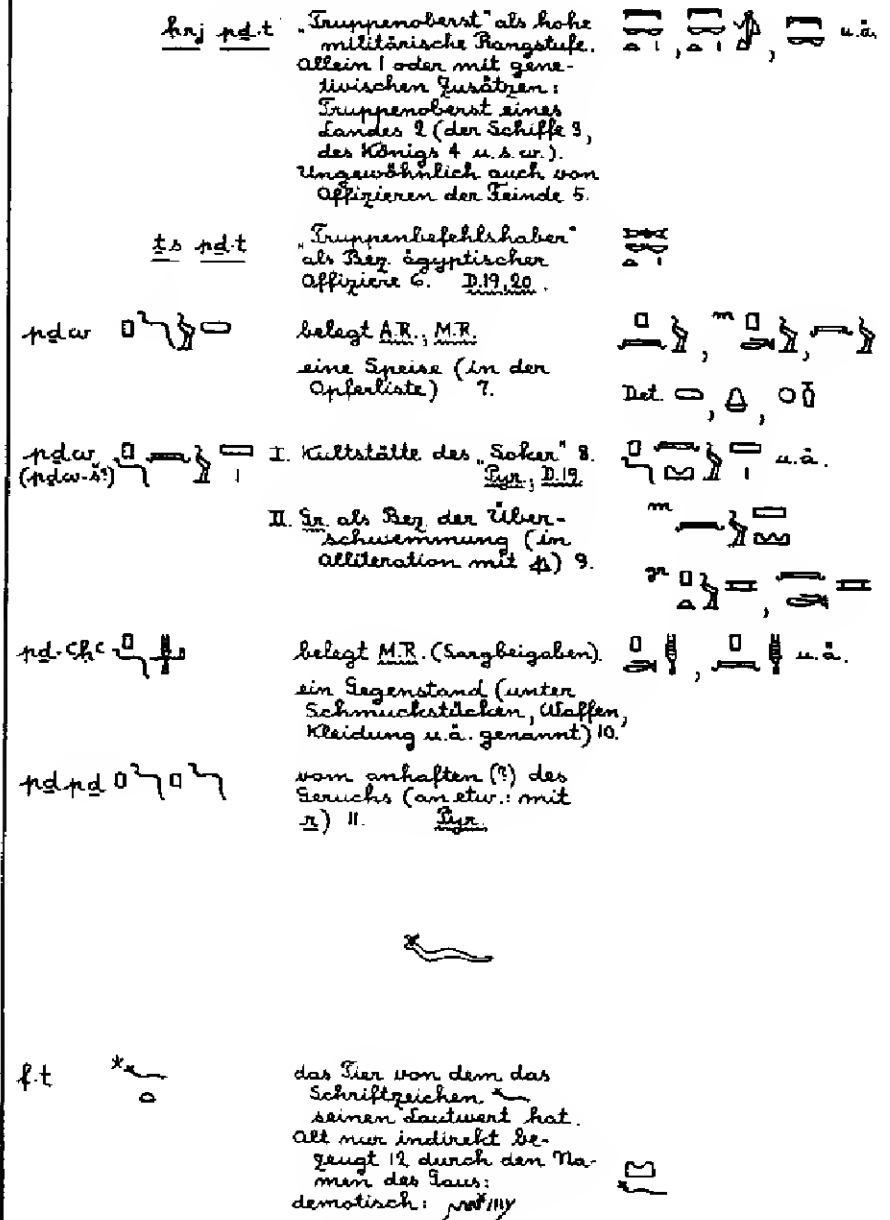 ḥrj pḏ.t „Truppenoberst" als hohe
militärische Rangstufe. u.ä.
Allein 1 oder mit gene-
tivischen Zusätzen:
Truppenoberst eines
Landes 2 (der Schiffe 3,
des Königs 4 u.s.w.).
Ungewöhnlich auch von
Offizieren der Feinde 5.
ṯs pḏ.t „Truppenbefehlshaber"
als Bez. ägyptischer
Offiziere 6. D.19,20.
pḏw belegt A.R., M.R.
eine Speise (in der
Opferliste) 7. Det.
pḏw I. Kultstätte des „Soker" 8. u.ä.
(pḏw-š?) Pyr., D.19
II. Gr. als Bez. der Über-
schwemmung (in
Alliteration mit p) 9. gr
pḏ-ꜥḥꜥ belegt M.R. (Sargbeigaben). u.ä.
ein Gegenstand (unter
Schmuckstücken, Waffen,
Kleidung u.ä. genannt) 10.
pḏpḏ vom anhaften (?) des
Geruchs (an etw.: mit
r) 11. Pyr.
f.t das Tier von dem das
Schriftzeichen
seinen Lautwert hat.
Alt nur indirekt be-
zeugt 12 durch den Na-
men des Gaus:
demotisch: